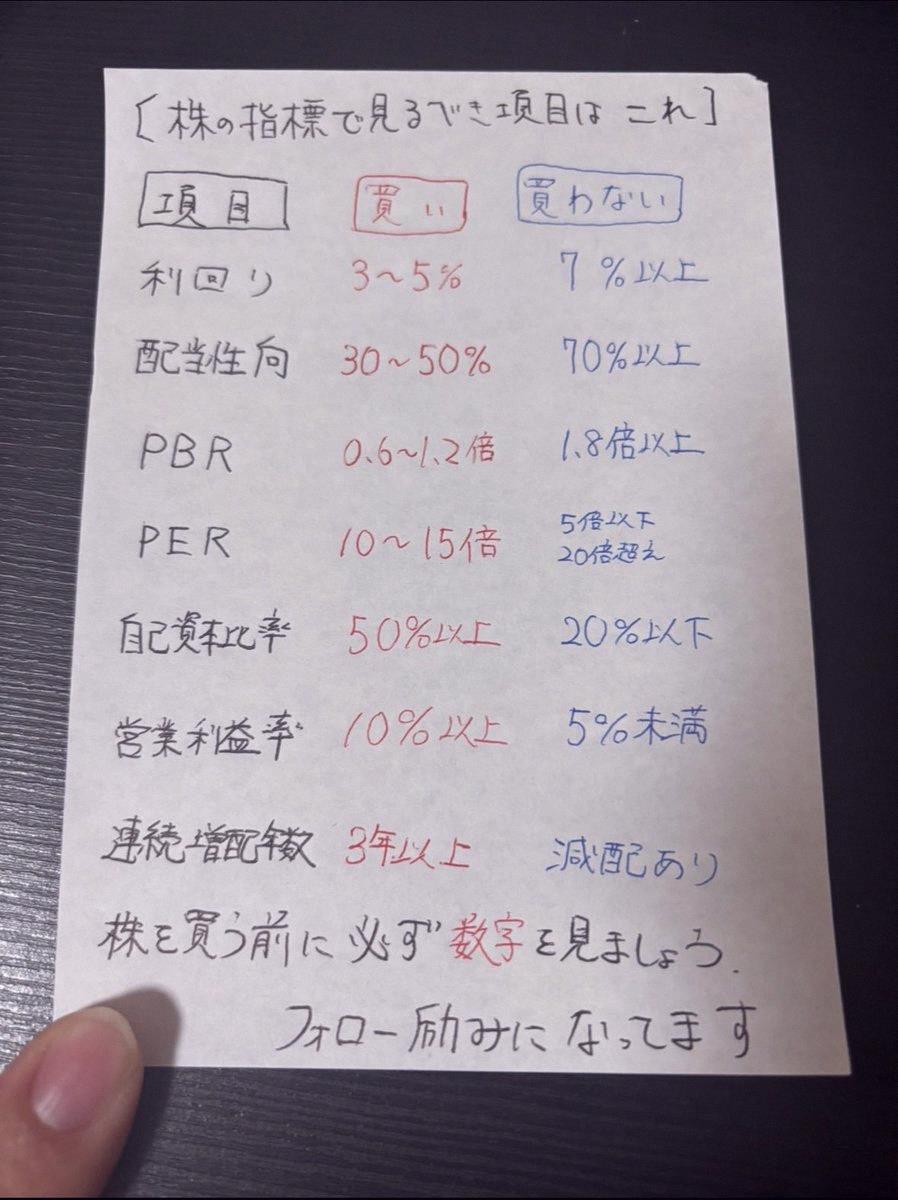 [株の指標で見るべき項目は これ]
項目 買い 買わない
利回り 3~5% 7%以上
配当性向 30~50% 70%以上
PBR 0.6~1.2倍 1.8倍以上
PER 10~15倍 5倍以下
20倍超え
自己資本比率 50%以上 20%以下
営業利益率 10%以上 5%未満
連続増配年数 3年以上 減配あり
株を買う前に必ず数字を見ましょう.
フォロー励みになってます